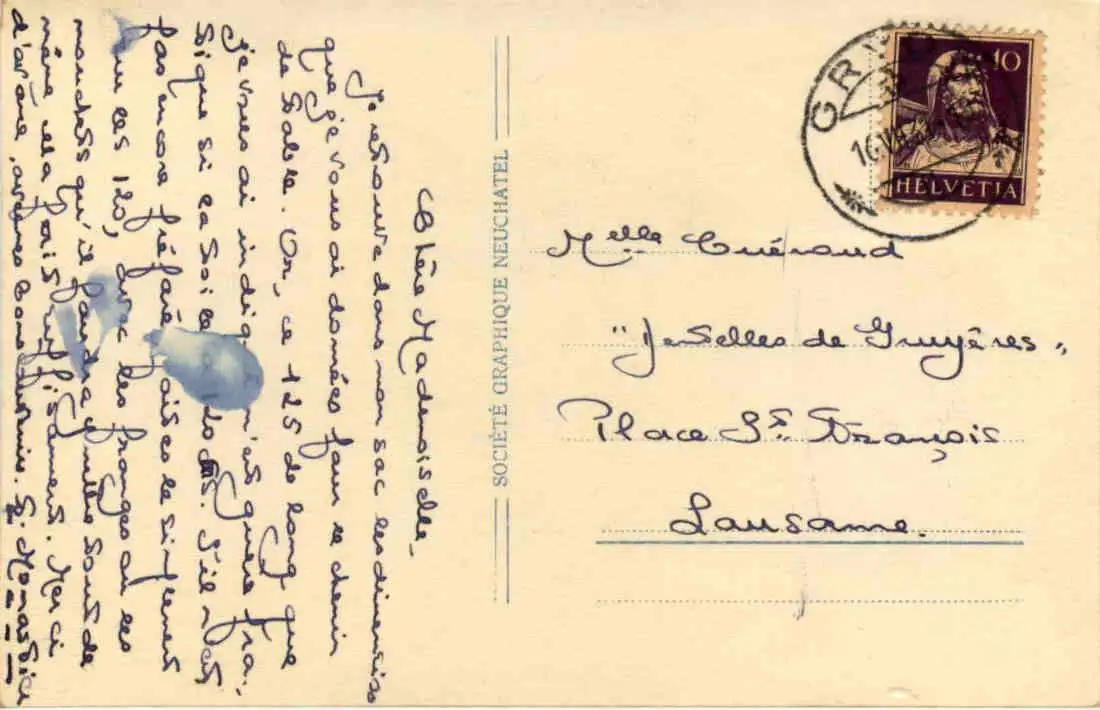 Chère Mademoiselle,
Je retrouve dans mon sac les dimensions
que je vous ai données pour le chemin
de table. Or, ce 125 de long que
je vous ai indiqué n'est guère pra-
tique si la toile a 120 cts. S'il n'est
pas encore préparé faites le simplement
sur les 120, avec les franges ou les
mouchets qu'il faudra, quitte sont de
même cela fait suffisament. Merci
d'avance, avec bons
SOCIÉTÉ GRAPHIQUE NEUCHATEL
GRUY
16 VII
10
HELVETIA
Melle Guéraud
"Dentelles de Gruyères"
Place St. François
Lausanne.